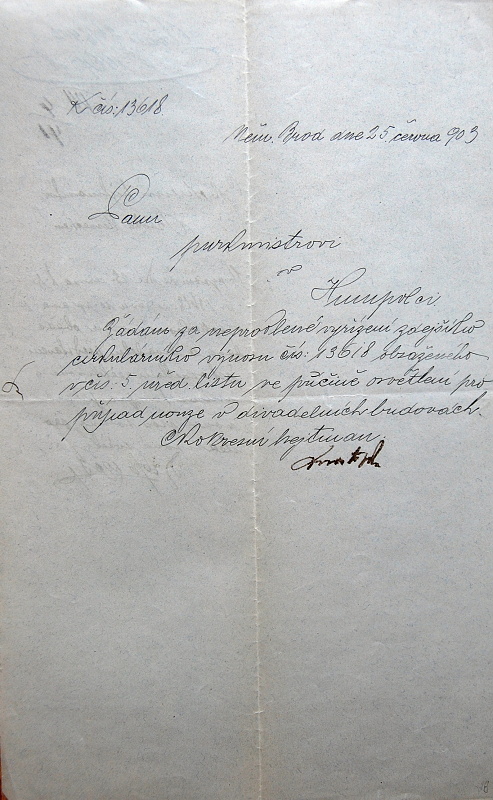 K čís: 13618.
Něm. Brod dne 25. června 903
Panu
purkmistrovi
v
Humpolci
Žádám za neprodlené vyřízení zdejšího
cirkulárního výnosu čís: 13618 obsaženého
v čís. 5. úřed. listu ve příčině osvětlení pro
případ nouze v divadelních budovách.
C.k. okresní hejtman